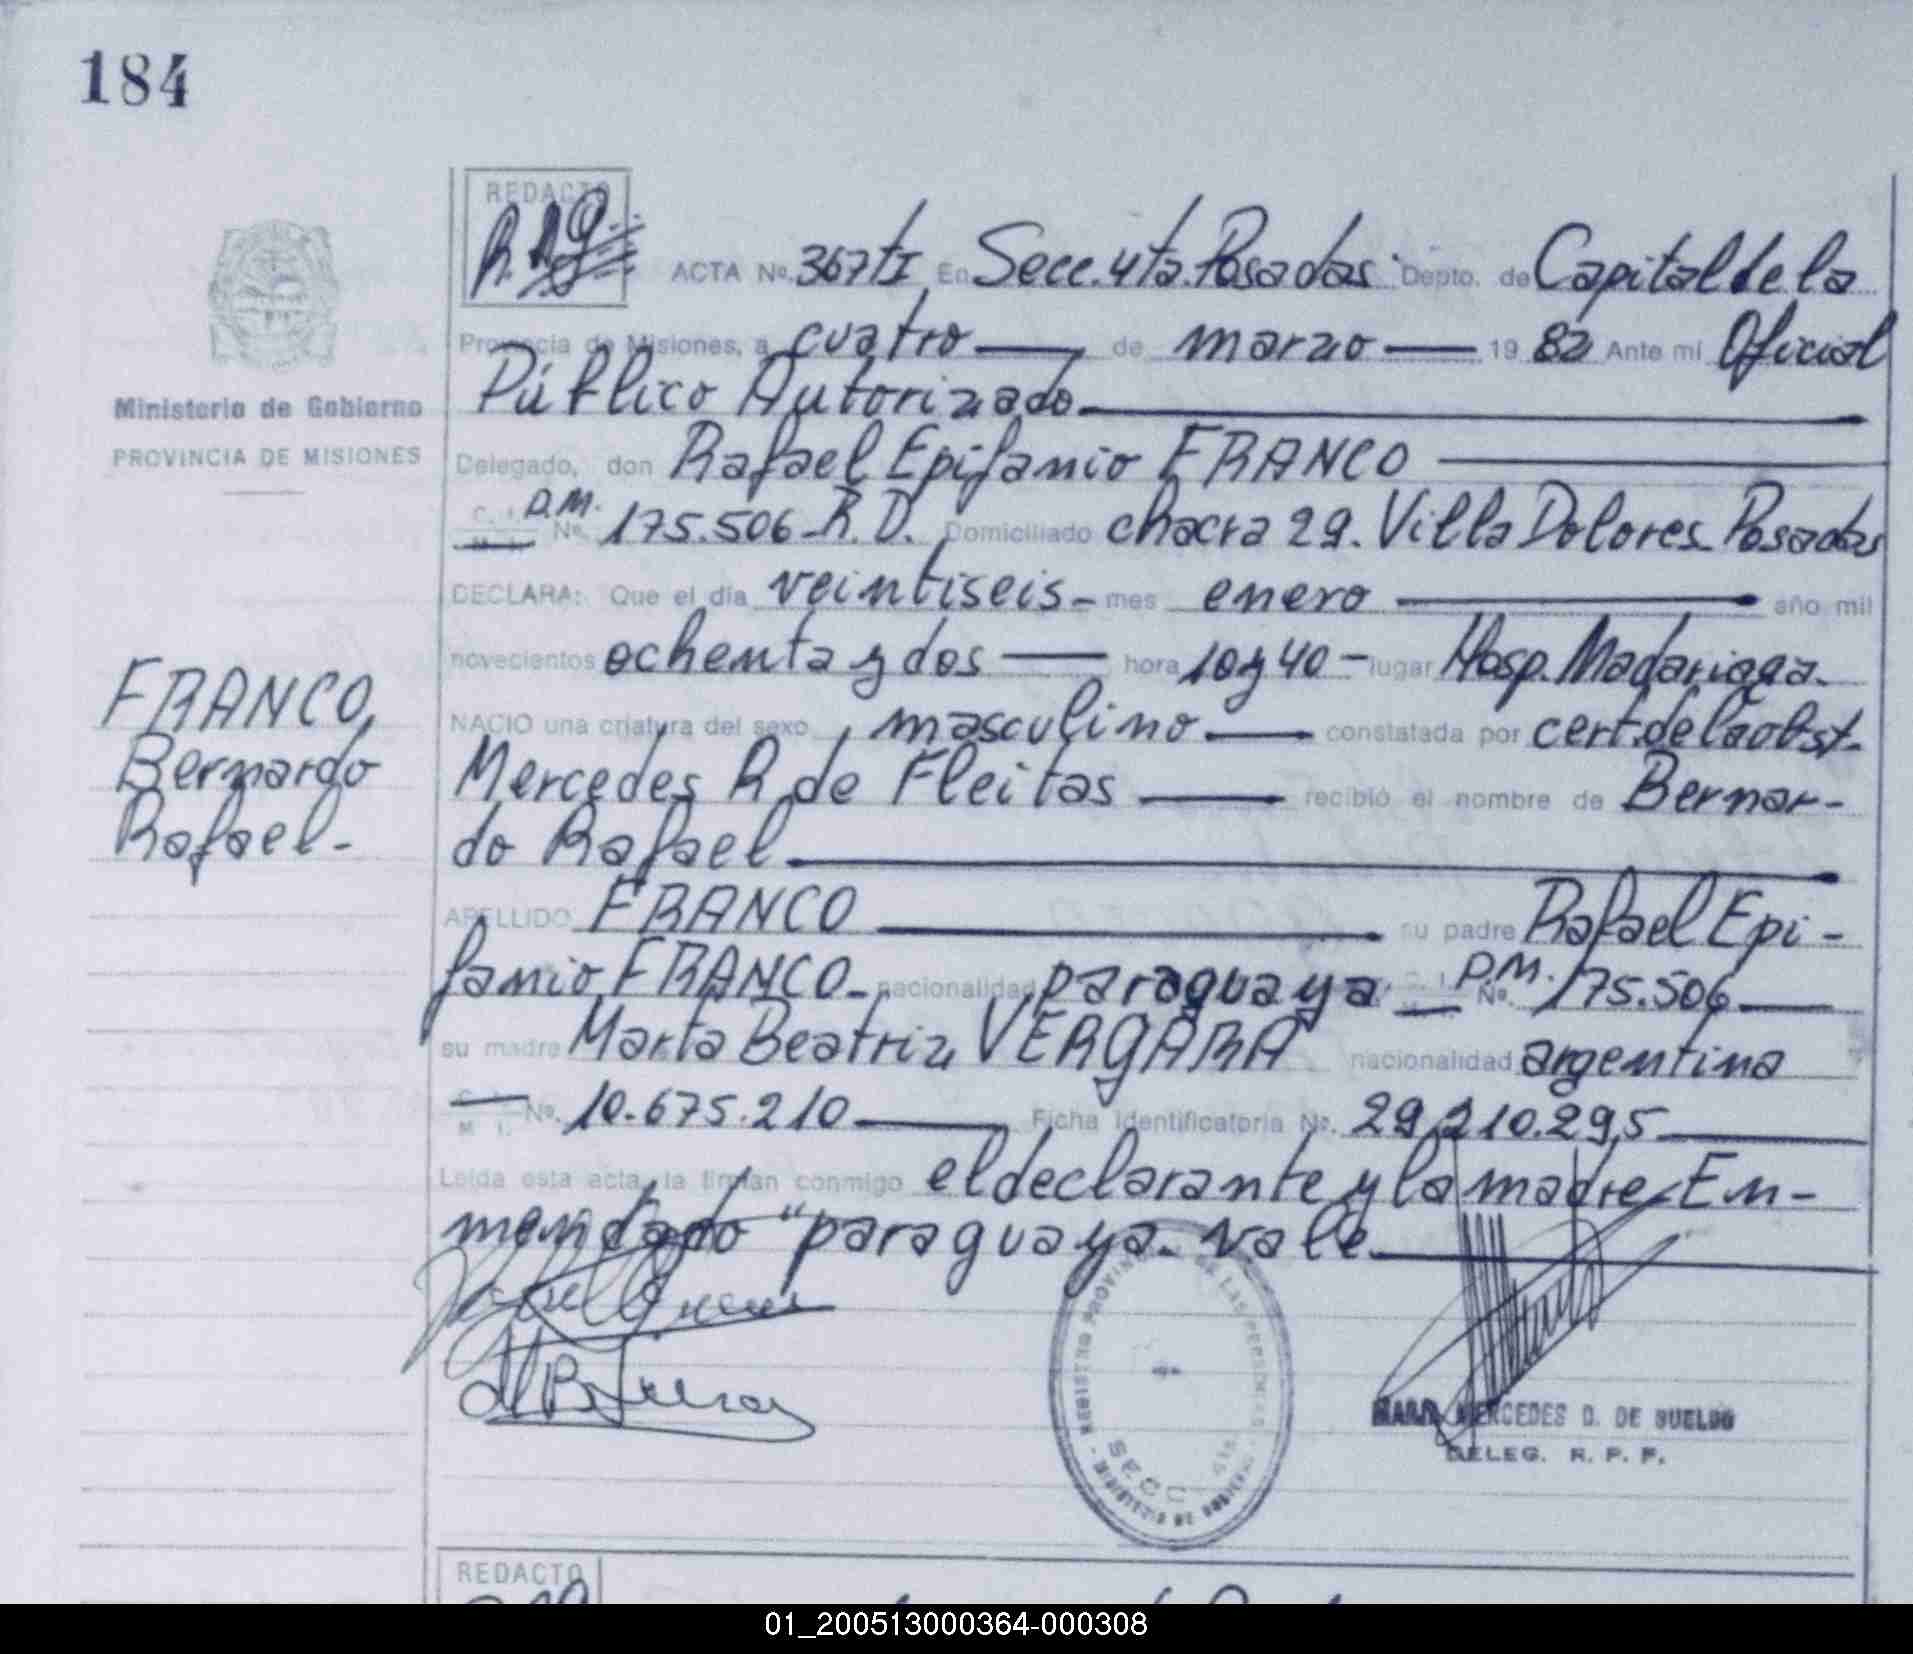 184
REDACTO
ACTA Nº 367 tI En Secc. 4ta. Posadas Depto. de Capital de la
Provincia de Misiones, a cuatro de marzo 1982 Ante mí Oficial
Ministerio de Gobierno
Público Autorizado
PROVINCIA DE MISIONES
Delegado, don Rafael Epifamio FRANCO
C. I. M. I. D.M. Nº 175.506 R.D. Domiciliado chacra 29. Villa Dolores Posadas
DECLARA: Que el día veintiseis - mes enero año mil
novecientos ochenta y dos hora 10 y 40 - lugar Hosp. Madariaga.
FRANCO,
Bernardo
Rafael -
NACIO una criatura del sexo masculino constatada por cert. de la obst.
Mercedes R de Fleitas recibió el nombre de Bernar-
do Rafael
APELLIDO FRANCO su padre Rafael Epi-
famio FRANCO - nacionalidad paraguaya C. I. D.M. Nº 175.506
su madre Marta Beatriz VERGARA nacionalidad argentina
M. I. Nº 10.675.210 Ficha Identificatoria Nº 29.210.295
Leída esta acta, la firman conmigo el declarante y la madre - En-
mendado "paraguaya. vale
REGISTRO PROVINCIAL DE LAS PERSONAS
SECC
MERCEDES D. DE SUELDO
DELEG. R. P. P.
REDACTO
01_200513000364-000308